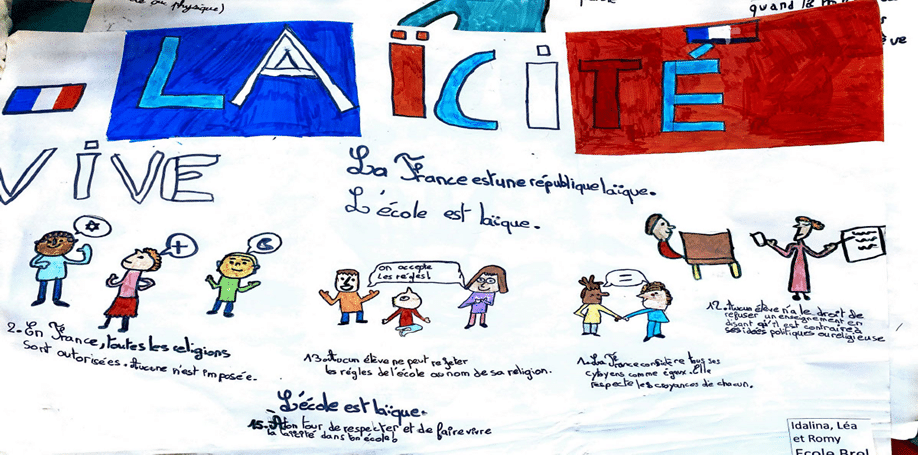 ou physique)
quand le
LAÏCITÉ
VIVE
La France est une république laïque.
L'école est laïque.
on accepte
les règles!
=
2. En France, toutes les religions
sont autorisées. Aucune n'est imposée.
13. Aucun élève ne peut rejeter
les régles de l'école au nom de sa religion.
1. La Fr considère tous ses
citoyens comme égaux. Elle
respecte les croyances de chacun.
12. Aucun élève n'a le droit de
refuser un enseignement en
disant qu'il est contraire à
ses idées politiques ou religieuse
L'école est laïque.
15. A ton tour de respecter et de faire vivre
la laïcité dans ton école!
Idalina, Léa
et Romy
Ecole Brol